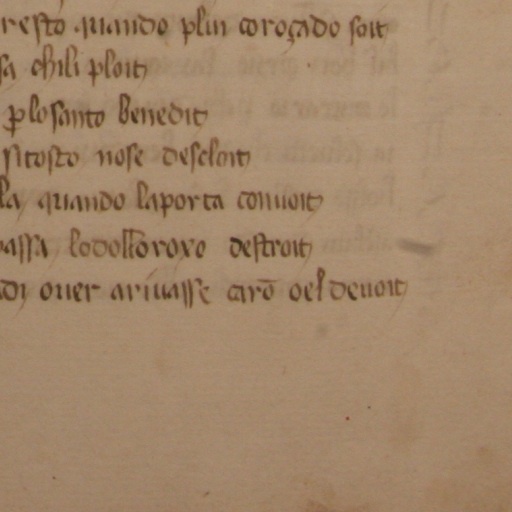 resto quando pluı coroçado soit
sa chili ploit
p̲ lo santo benedit
si tosto nose descloit
la quando la porta conuoit
passa lo doll'oroxo destroit
di ouer ariuasse carō o el deuoit